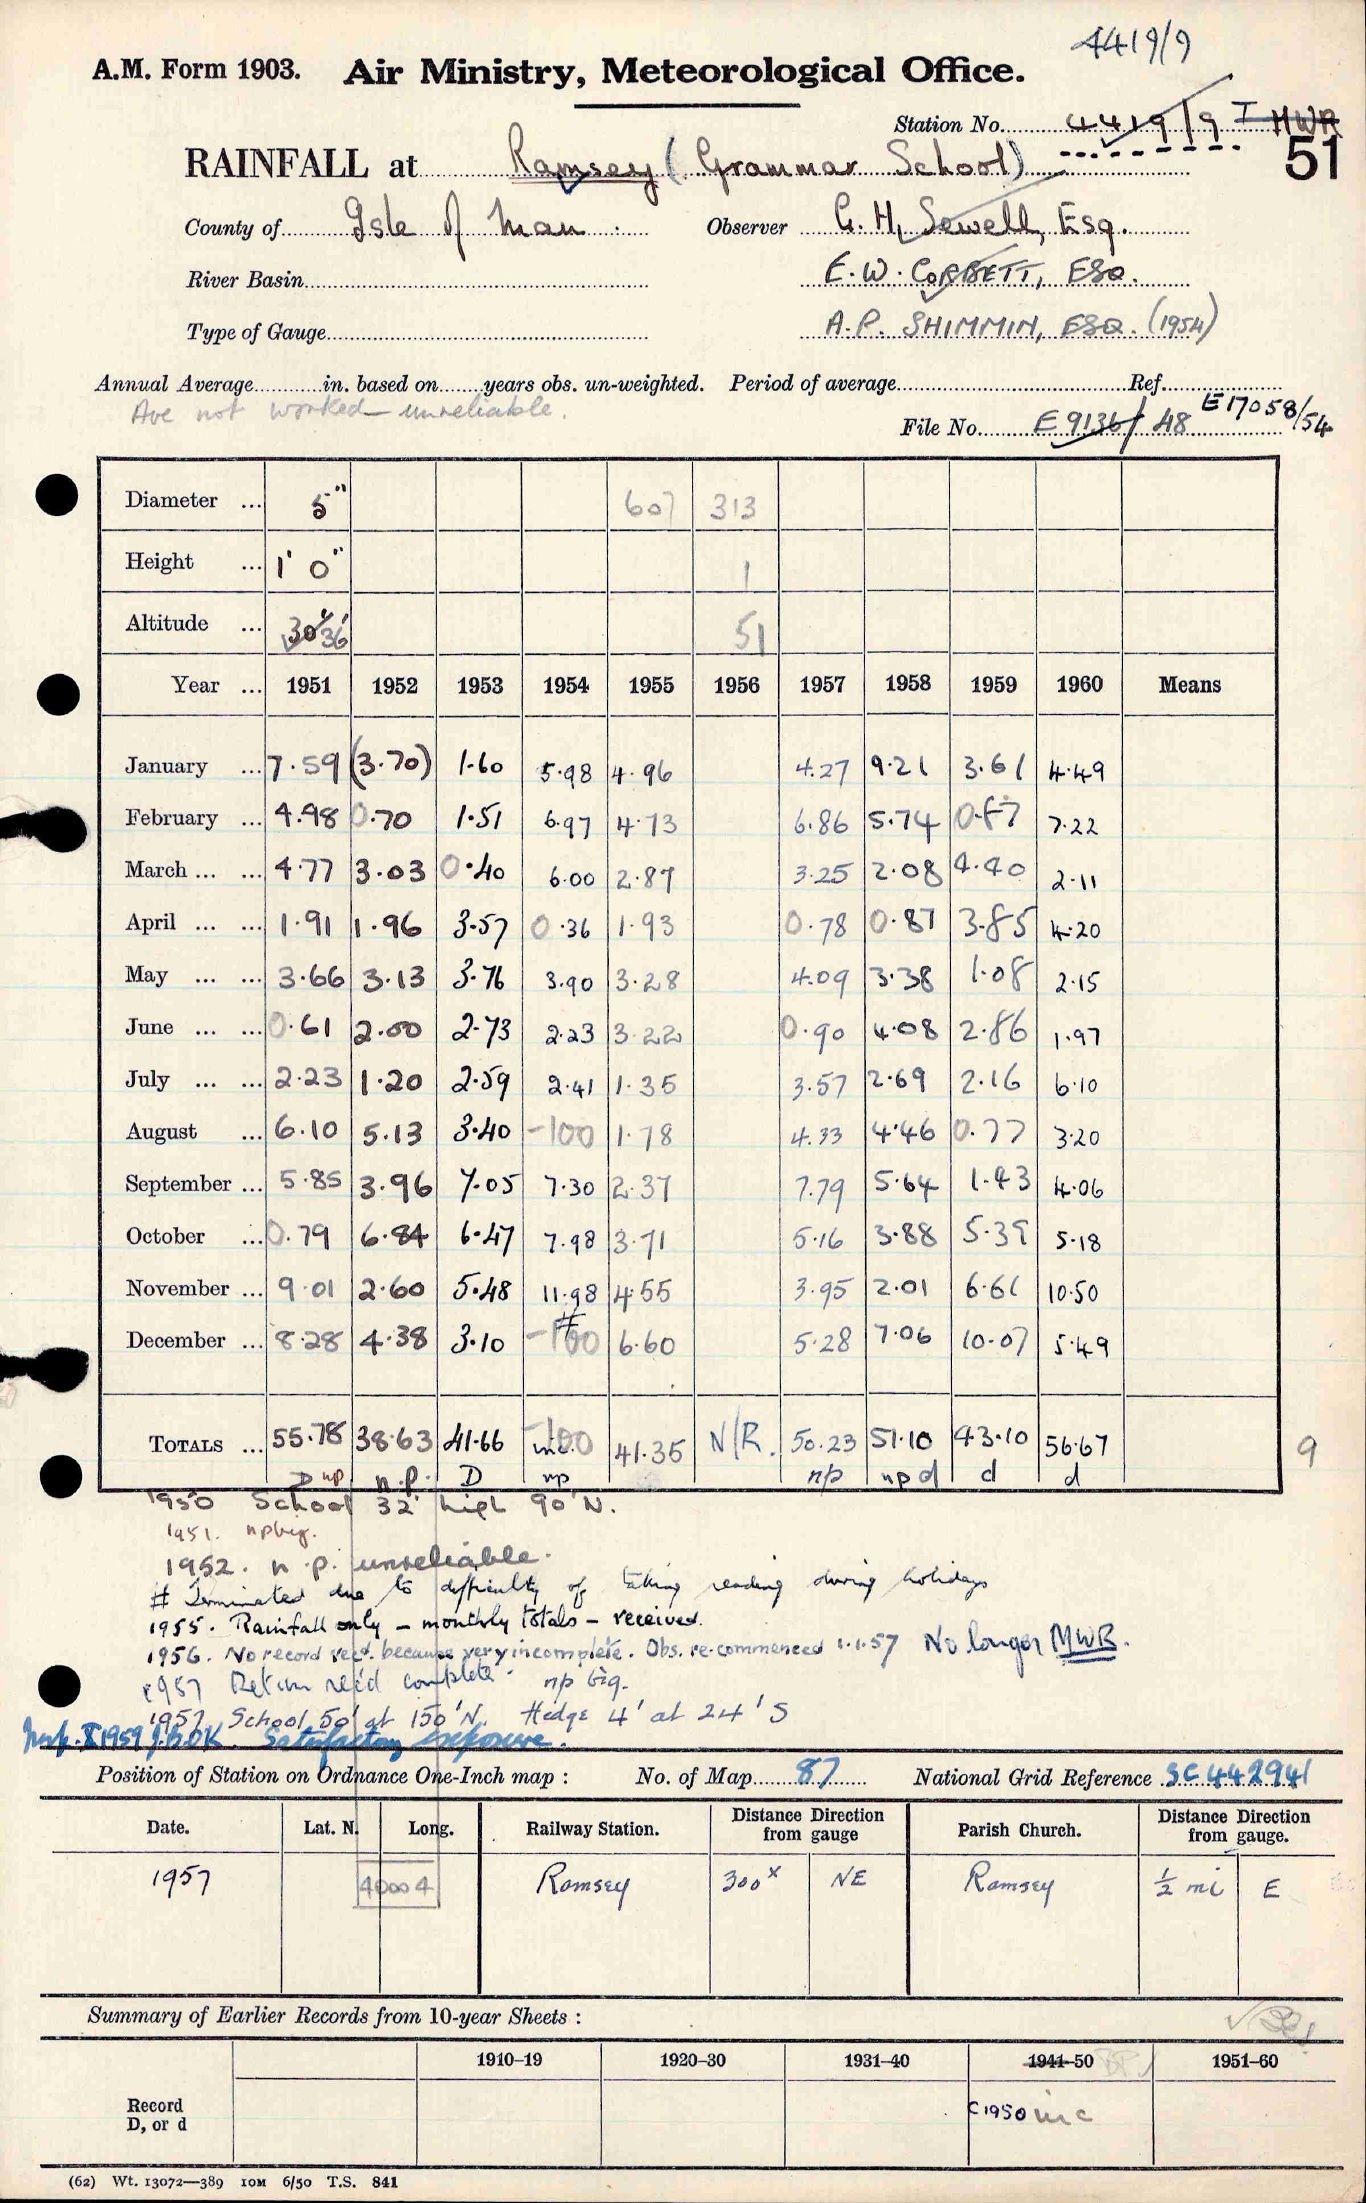 4419/9
A.M. Form 1903. Air Ministry, Meteorological Office.
Station No. 4419/9 I MWR
51
RAINFALL at Ramsey (Grammar School)
County of Isle of Man. Observer G. H. Sewell, Esq.
River Basin E. W. CORBETT, ESQ.
Type of Gauge A. P. SHIMMIN, ESQ. (1954)
Annual Average in. based on years obs. un-weighted. Period of average Ref.
Ave not worked – unreliable.
File No. E 9136/48 E17058/54
Diameter ... 5" 607 313
Height ... 1' 0" 1
Altitude ... 30' 36' 51
Year ... 1951 1952 1953 1954 1955 1956 1957 1958 1959 1960 Means
January ... 7.59 (3.70) 1.60 5.98 4.96 4.27 9.21 3.61 4.49
February ... 4.98 0.70 1.51 6.97 4.73 6.86 5.74 0.87 7.22
March ... ... 4.77 3.03 0.40 6.00 2.87 3.25 2.08 4.40 2.11
April ... ... 1.91 1.96 3.57 0.36 1.93 0.78 0.87 3.85 4.20
May ... ... 3.66 3.13 3.76 3.90 3.28 4.09 3.38 1.08 2.15
June ... ... 0.61 2.00 2.73 2.23 3.22 0.90 4.08 2.86 1.97
July ... ... 2.23 1.20 2.59 2.41 1.35 3.57 2.69 2.16 6.10
August ... 6.10 5.13 3.40 -100 1.78 4.33 4.46 0.77 3.20
September ... 5.85 3.96 7.05 7.30 2.37 7.79 5.64 1.43 4.06
October ... 0.79 6.84 6.47 7.98 3.71 5.16 3.88 5.39 5.18
November ... 9.01 2.60 5.48 11.98 4.55 3.95 2.01 6.61 10.50
December ... 8.28 4.38 3.10 -100 # 6.60 5.28 7.06 10.07 5.49
TOTALS ... 55.78 38.63 41.66 inc -100 41.35 N/R. 50.23 51.10 43.10 56.67 9
D np n.p. D np np np d d d
1950 School 32' high 90' N.
1951. np big.
1952. n.p. unreliable.
# Terminated due to difficulty of taking reading during holidays
1955. Rainfall only – monthly totals – received.
1956. No record recd. because very incomplete. Obs. re-commenced 1.1.57 No longer MWR.
1957 Return rec'd complete. np big.
1957. School 50' at 150' N. Hedge 4' at 24' S
Insp. X 1959 Satisfactory exposure.
Position of Station on Ordnance One-Inch map : No. of Map 87 National Grid Reference SC 442941
Date. Lat. N. Long. Railway Station. Distance Direction from gauge Parish Church. Distance Direction from gauge.
1957 40004 Ramsey 300x NE Ramsey ½ mi E
Summary of Earlier Records from 10-year Sheets :
1910–19 1920–30 1931–40 1941–50 1951–60
Record D, or d
C1950 inc
(62) Wt. 13072—389 10M 6/50 T.S. 841